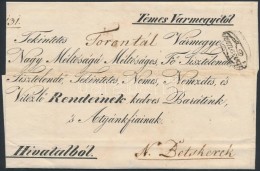 Temes Vármegyétől
Tekéntetes Torontál Vármegye
Nagy Méltóságú Méltóságos Fő Tisztelendő
Tisztelendő, Tekéntetes, Nemes, Nemzetes, és
Vitézlő Rendeinek kedves Barátink,
s Atyánkfiainak
Hivatalból. N. Betskerek